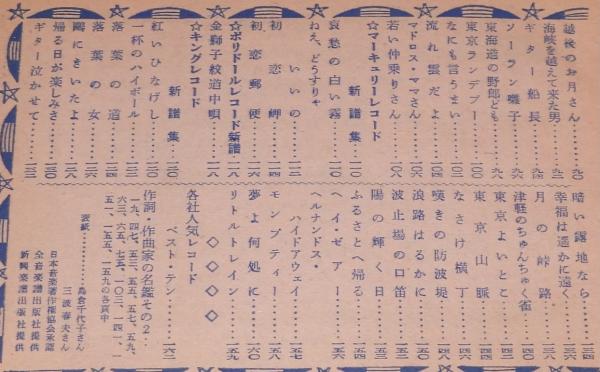 越後のお月さん……九〇
海峡を越えて来た男……九二
ギター船長……九四
ソーラン囃子……九六
東海道の野郎ども……九八
東京ランデブー……一〇〇
なにも言うまい……一〇二
流れ雲だよ……一〇四
マドロス・ママさん……一〇六
若い仲乗りさん……一〇八
☆マーキュリーレコード
新譜集
哀愁の白い霧……一一〇
ねえ、どうすりゃ
いいの……一一二
初恋岬……一一四
初恋郵便……一一六
☆ポリドールレコード新譜
金獅子紋道中唄……一一八
☆キングレコード
新譜集
紅いひなげし……一二〇
一杯のハイボール……一二二
落葉の道……一二四
落葉の女……一二六
鴎にきいたよ……一二八
帰る日が楽しみさ……一三〇
ギター泣かせて……一三二
暗い露地なら……三四
幸福は遥かに遠く……三六
月の峠路……三八
津軽のちゅんちゅく雀……四〇
東京よいとこ……四二
東京山脈……四四
なさけ横丁……四六
嘆きの防波堤……四八
浪路はるかに……五〇
波止場の口笛……五二
陽の輝く日……五三
ふるさとへ帰る……五四
ヘイ・ゼアー……五六
ヘルナンドス・
ハイドアウェイ……五七
モンプティー……五八
夢よ何処に……六〇
リトルトレイン……五九
◇◇◇◇
各社人気レコード
ベスト・テン……一六二
作詞・作曲家の名鑑その2‥
一九、四七、五三、五五、五七、五九、
六三、六五、七五、一〇三、一四一、一
五一、一五五、一五九の各頁中
表紙……島倉千代子さん
三波春夫さん
日本音楽著作権協会承認
全音楽譜出版社提供
新興楽譜出版社提供